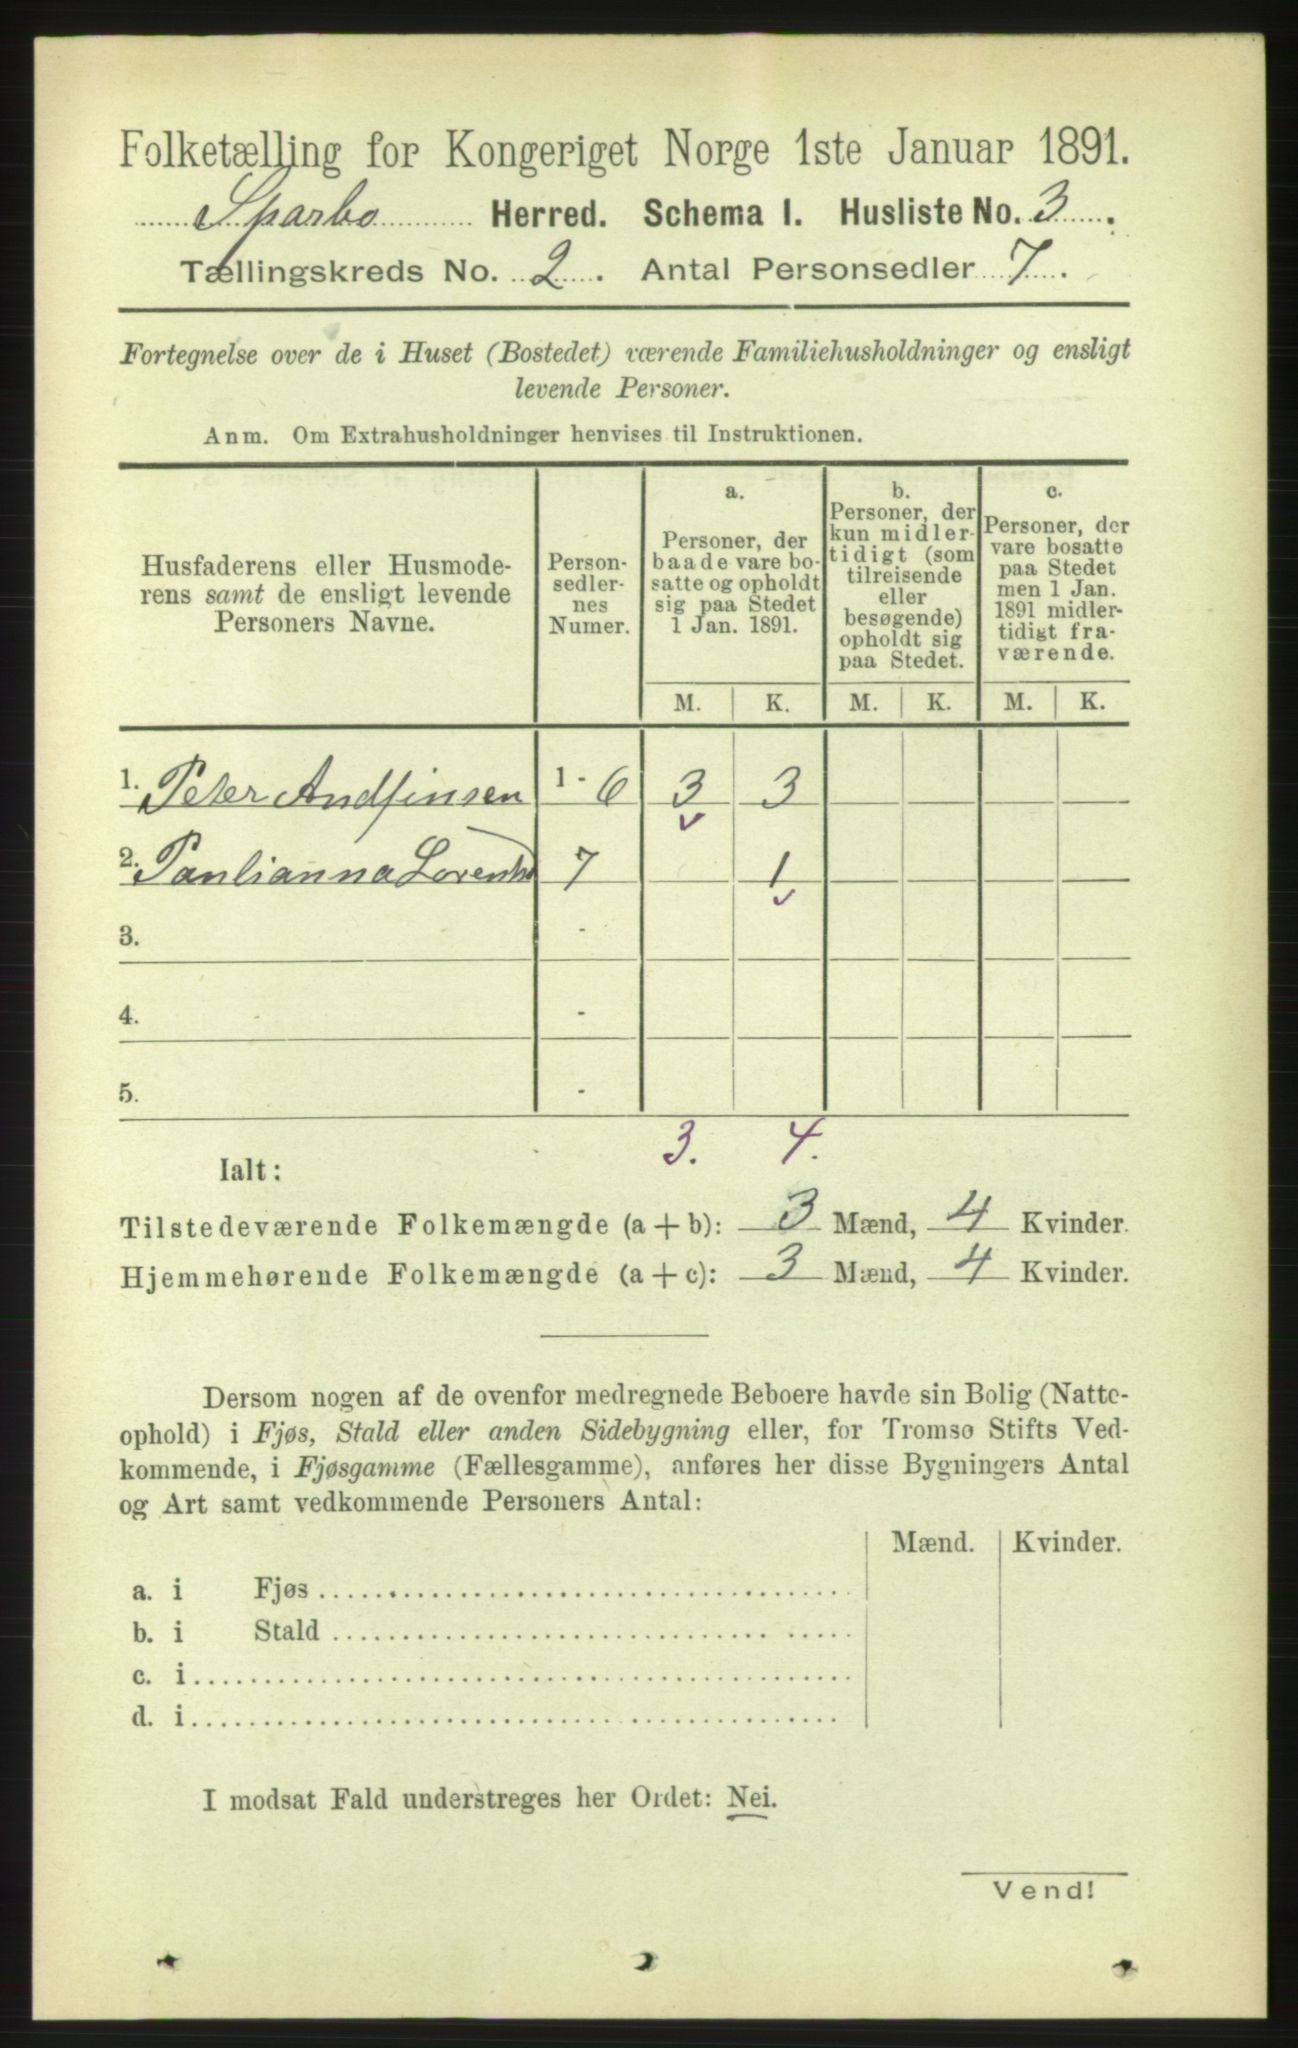 Folketælling for Kongeriget Norge 1ste Januar 1891.
Sparbo Herred. Schema I. Husliste No. 3.
Tællingskreds No. 2. Antal Personsedler 7.
Fortegnelse over de i Huset (Bostedet) værende Familiehusholdninger og ensligt
levende Personer.
Anm. Om Extrahusholdninger henvises til Instruktionen.
Husfaderens eller Husmode-
rens samt de ensligt levende
Personers Navne.
Person-
sedler-
nes
Numer.
a.
Personer, der
baade vare bo-
satte og opholdt
sig paa Stedet
1 Jan. 1891.
b.
Personer, der
kun midler-
tidigt (som
tilreisende
eller
besøgende)
opholdt sig
paa Stedet.
c.
Personer, der
vare bosatte
paa Stedet
men 1 Jan.
1891 midler-
tidigt fra-
værende.
M. K. M. K. M. K.
1. Peter Andfinsen 1 - 6 3 3
2. Paulianna 7 1
3. -
4. -
5. -
3. 4.
Ialt:
Tilstedeværende Folkemængde (a + b): 3 Mænd, 4 Kvinder.
Hjemmehørende Folkemængde (a + c): 3 Mænd, 4 Kvinder.
Dersom nogen af de ovenfor medregnede Beboere havde sin Bolig (Natte-
ophold) i Fjøs, Stald eller anden Sidebygning eller, for Tromsø Stifts Ved-
kommende, i Fjøsgamme (Fællesgamme), anføres her disse Bygningers Antal
og Art samt vedkommende Personers Antal:
Mænd. Kvinder.
a. i Fjøs
b. i Stald
c. i
d. i
I modsat Fald understreges her Ordet: Nei.
Vend!